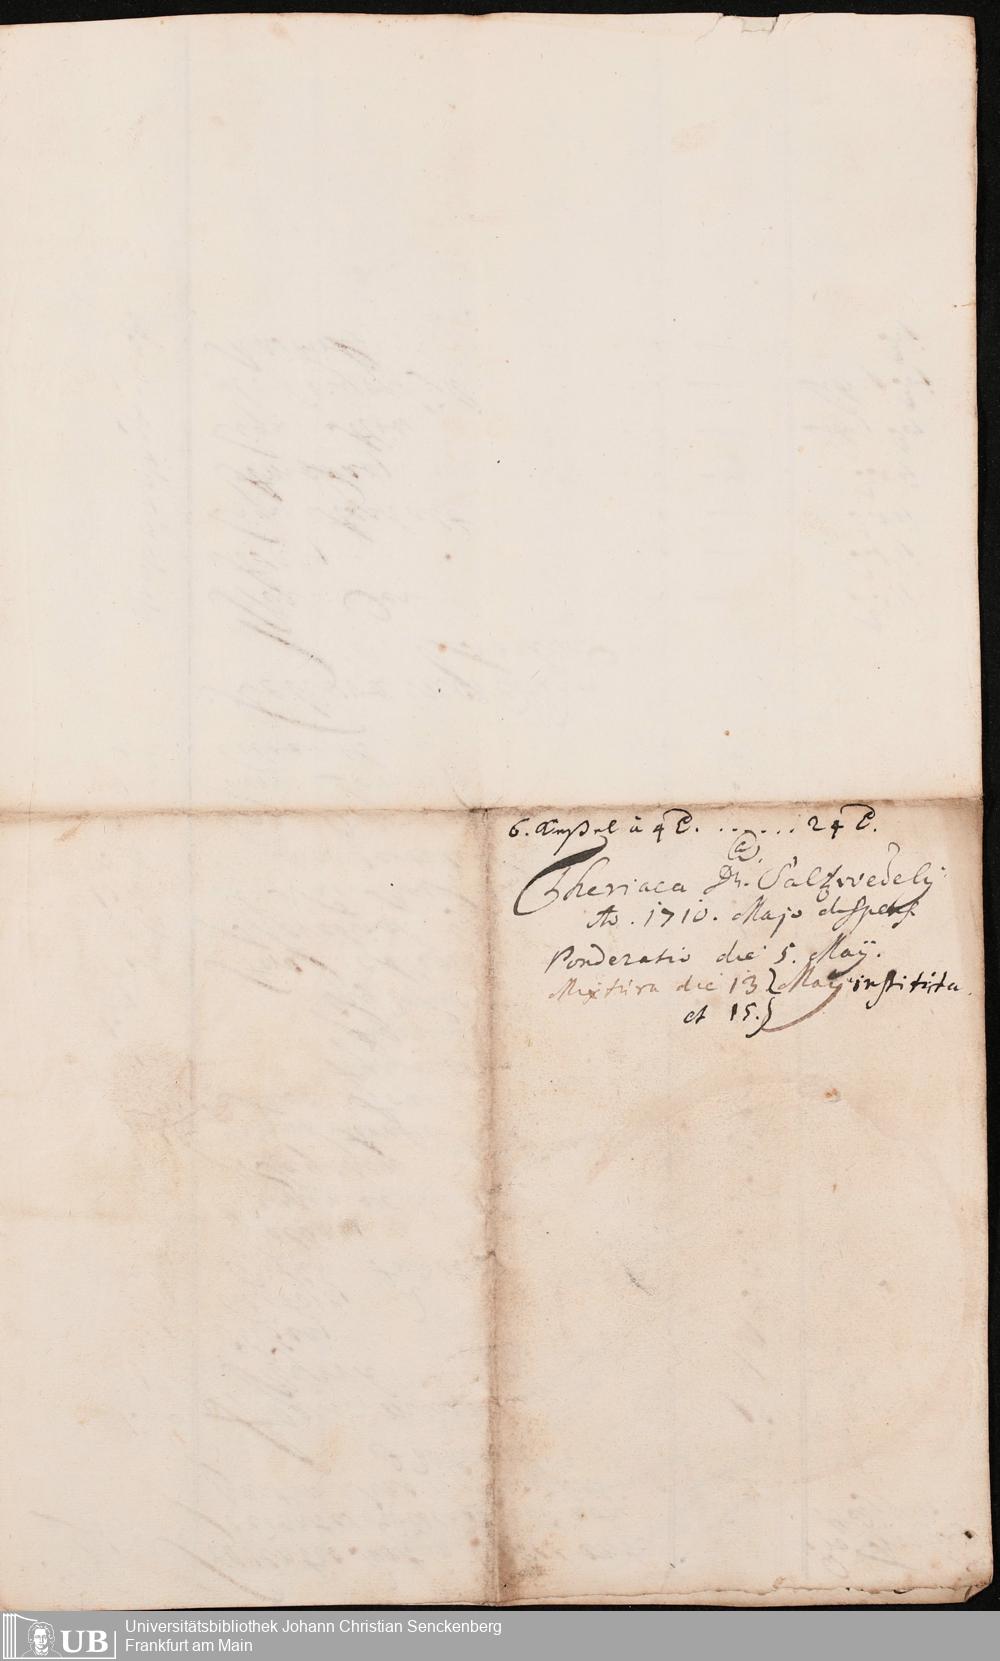 6. Keßel à 4 C. . . . . . . 24 C.
@.
Theriaca Dn. Saltzwedely
Ao. 1710. Majo dispens.
Ponderatio die 5. Maÿ.
Mixtúra die 13 } Maÿ institúta
et 15. }
Universitätsbibliothek Johann Christian Senckenberg
UB Frankfurt am Main